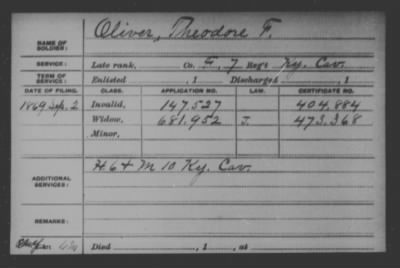 NAME OF SOLDIER: Oliver, Theodore F.
SERVICE: Late rank, Co. F, 7 Reg't Ky. Cav.
TERM OF SERVICE: Enlisted , 1 Discharged , 1
DATE OF FILING. CLASS. APPLICATION NO. LAW. CERTIFICATE NO.
1869 Sep. 2 Invalid, 147.527 404.884
Widow, 681.952 J. 473.368
Minor,
ADDITIONAL SERVICES: H. 6 & M 10 Ky. Cav.
REMARKS:
Died , 1 , at